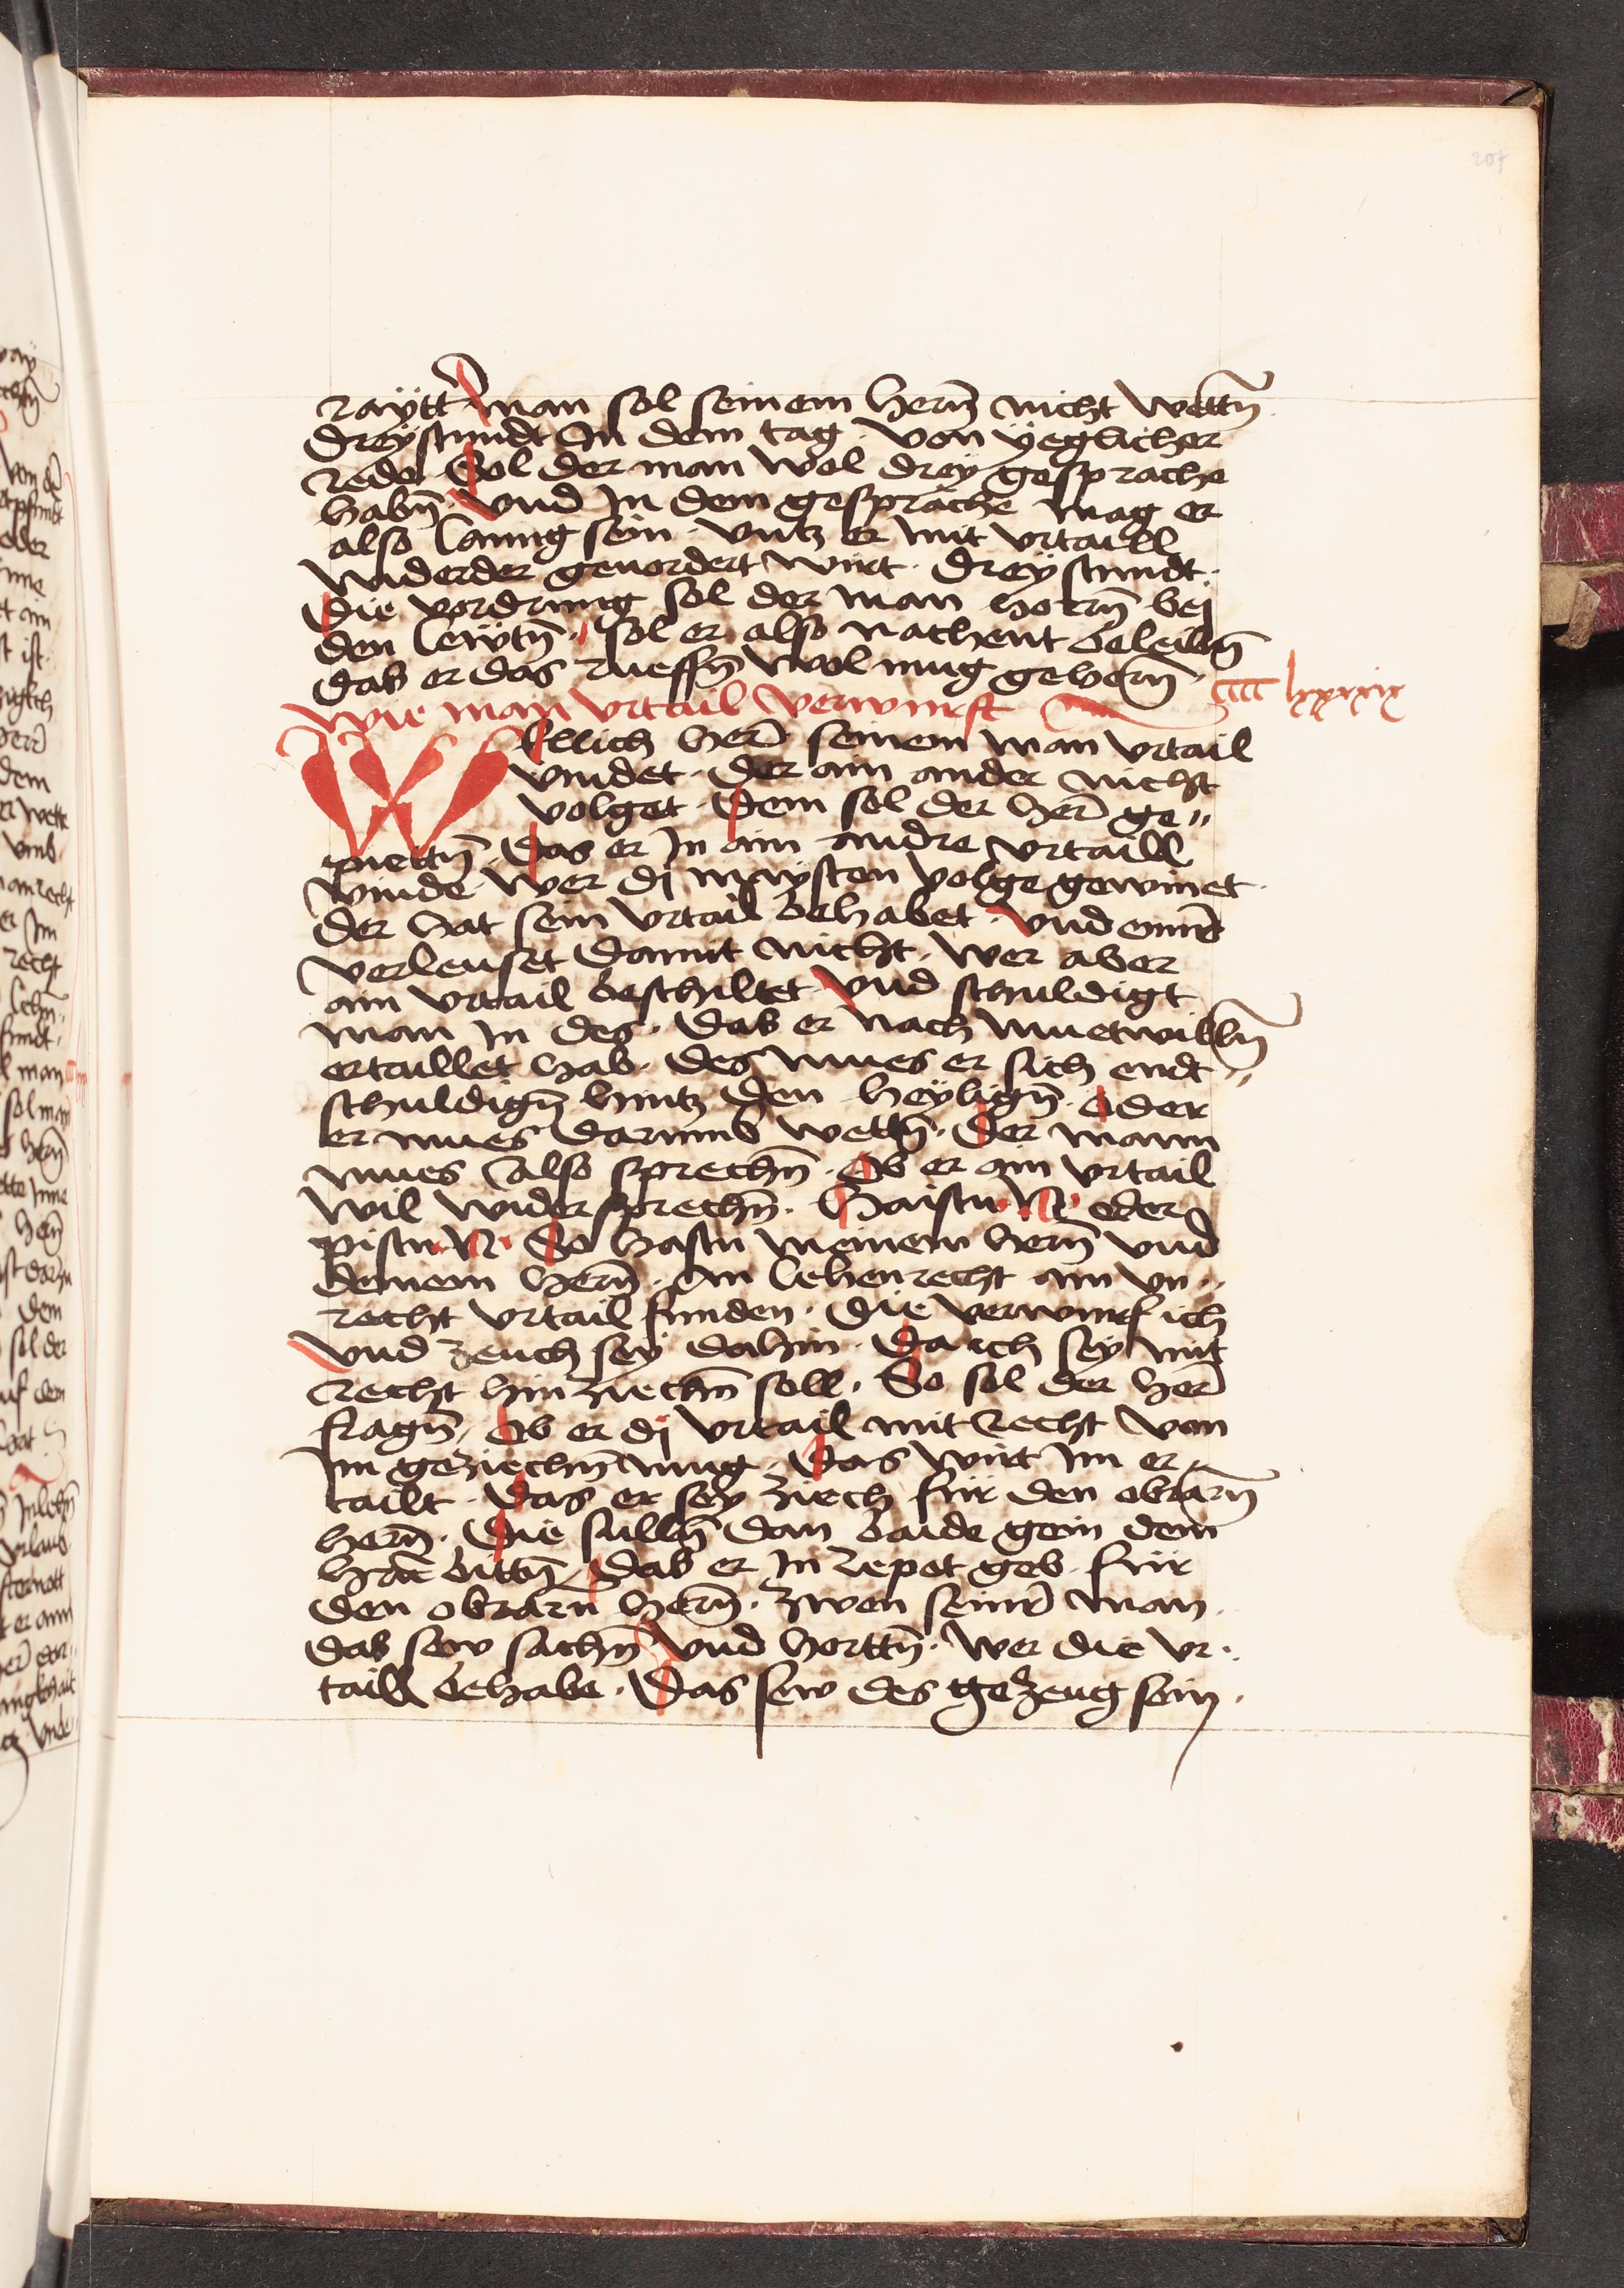 207
raÿtt man sol seinem hern̄ nicht wettn̄
dreÿstundt In dem tag. von ÿeglicher
rede. Sol der man wol dreÿ gesprache
habn̄. Vnd In dem gesprache mag er
also lanng sein. vntz er mit vrtaill
widerder geuordert wirt. dreÿ stundt.
Die vordrung sol der man horrn̄ bej
den lewtn̄. sol er also nachent beleibn̄
dab er das rueffn̄ wol mug gehorn̄.
Wie man vrtail verwurft
cccc lxxxxix
Wellich her̄ seinem man vrtail
vindet. der ain ander nicht
volget. Dem sol der her̄ ge„
piettn̄. Das er In ain andre vrtaill
vinde. Wer dj maÿsten volge gewinet.
der hat sein vrtail behabet. Vnd enner̄
verleuset damit nicht. wer aber
ain vrtail beschiltet. Vnd schuldigt
man In des. dab er nach muetwilln̄
ertaillet hab. des mues er sich endt„
schuldign̄ hintz den heÿlign̄. Oder
er mues darumb wettn̄. Der mann
mues also sprechn̄. Ob er ain vrtail
wil widersprechn̄. haistu N. oder
pistu N. So hastu meinem hern̄ vnd
deinem hern̄. Im lehenrecht ain vn„
recht vrtail funden. Die verwurf ich
Vnd zeuch seÿ dahin. Da ich seÿ mit
recht hin ziechn̄ soll. So sol der her̄
fragn̄. Ob er dj vrtail mit recht von
Im geziechn̄ mug. Das wirt Im er„
tailt. Das er seÿ ziech für den obrarn̄
hern̄. Die sulln̄ dan baide gein dem
hern̄ bittn̄. Dab er In zepot geb. für
den obrarn̄ hern̄. zwen seiner̄ man.
dab sew sachn̄ Vnd hortn̄. wer die vr„
taill behabe. Das sew des gezeug sein.